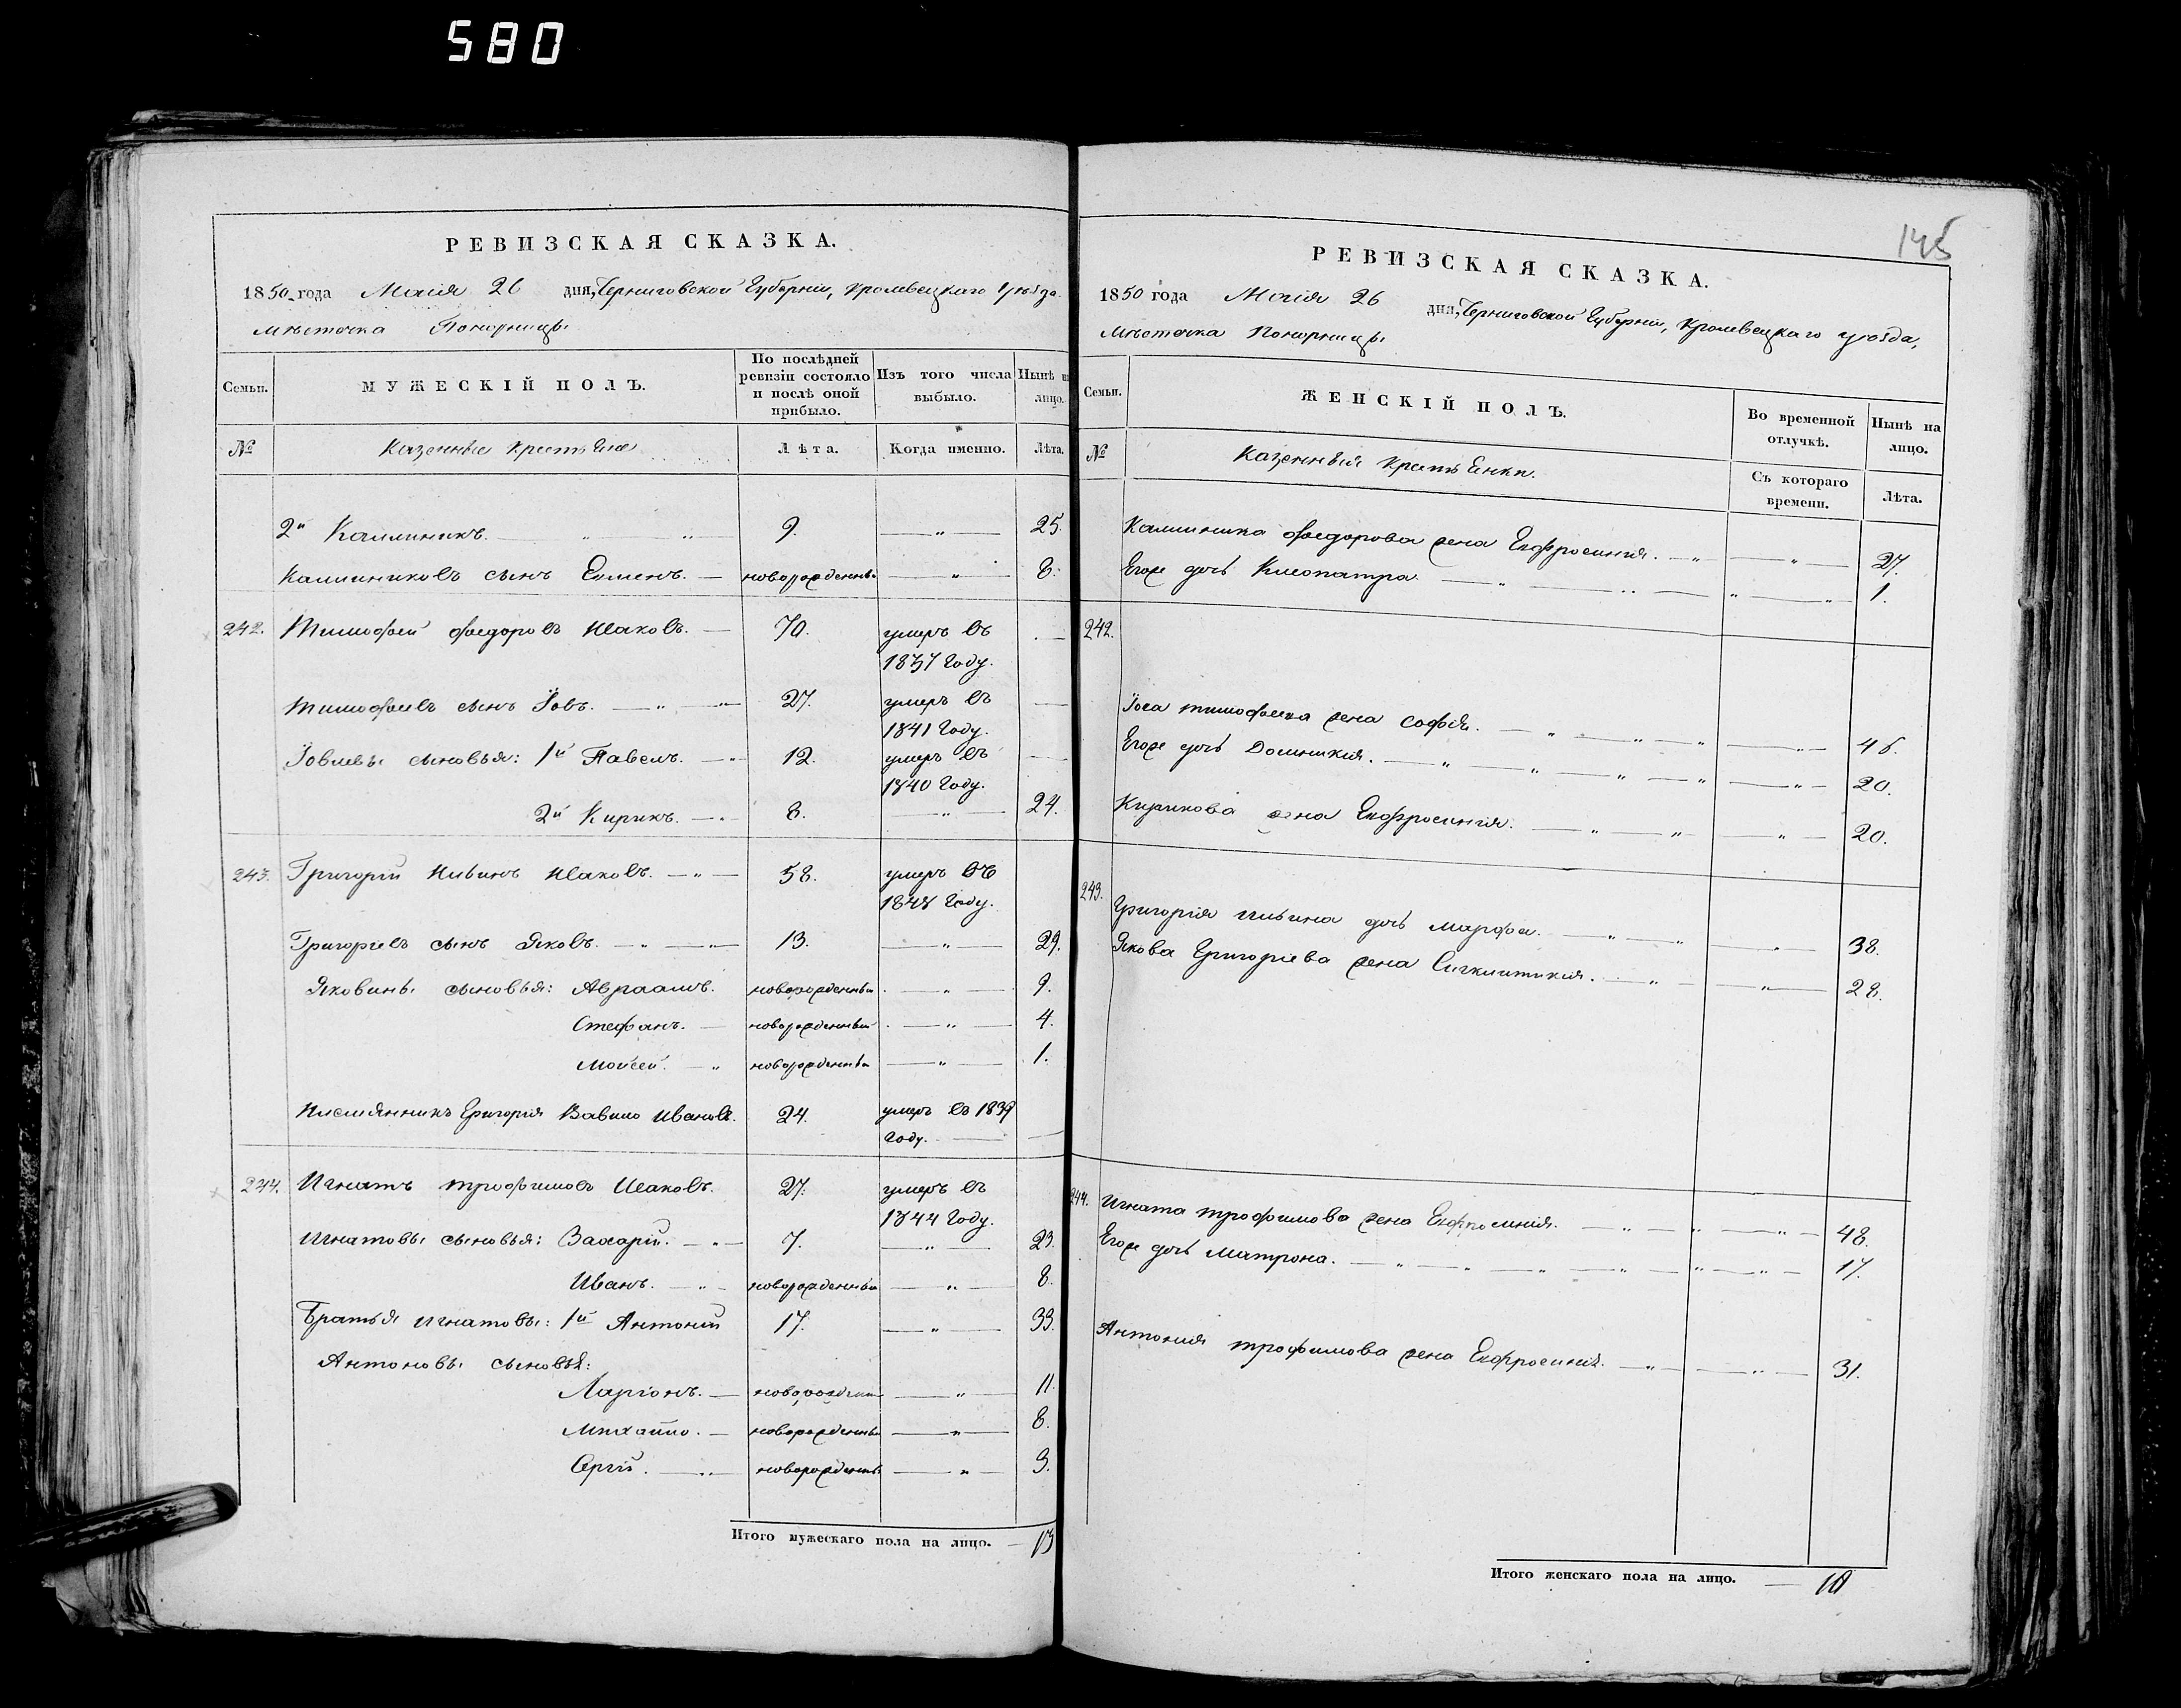 580
РЕВИЗСКАЯ СКАЗКА.
1850 года Маія 26 дня, Черниговской Губерніи, Кролевецкаго Уѣзда
мѣстечка Понорницы
Семьи. МУЖЕСКІЙ ПОЛЪ. По послѣдней ревизіи состояло и послѣ оной прибыло. Изъ того числа выбыло. Нынѣ на лицо.
№ Казенные крестьяне Лѣта. Когда именно. Лѣта.
2й Калиникъ. 9. 25.
Калиниковъ сынъ Семенъ. новорожденный 8.
242. Тимофей Федоровъ Исаковъ. 70. умеръ въ
1837 году.
Тимофеевъ сынъ Іовъ. 27. умеръ въ
1841 году.
Іовлевы сыновья: 1й Павелъ. 12. умеръ въ
1840 году.
2й Кирикъ. 8. 24.
243. Григорій Ильинъ Исаковъ. 58. умеръ въ
1848 году.
Григорьевъ сынъ Яковъ. 13. 29.
Яковины сыновья: Авраамъ. новорожденный 9.
Стефанъ. новорожденный 4.
Мойсей. новорожденный 1.
Племянникъ Григорія Вавило Ивановъ. 24. умеръ въ 1839
году.
244. Игнатъ Трофимовъ Исаковъ. 27. умеръ въ
1844 году.
Игнатовы сыновья: Захарій. 7. 23.
Иванъ. новорожденный 8.
Братья Игнатовы: 1й Антоній 17. 33.
Антоновы сыновья:
Ларіонъ. новорожден 11.
Михайло. новорожденный 8.
Сргій. новорожденный 3.
Итого мужескаго пола на лицо. 13
145
РЕВИЗСКАЯ СКАЗКА.
1850 года Маія 26 дня, Черниговской Губерніи, Кролевецкаго уѣзда,
мѣстечка Понорницы
Семьи. ЖЕНСКІЙ ПОЛЪ. Во временной отлучкѣ. Нынѣ на лицо.
№ Казенныя крестьянки. Съ котораго времени. Лѣта.
Калиника Федорова жена Евфросинія. 27.
Егоже дочь Клеопатра. 1.
242.
Іова Тимофеева жена Софія. 46.
Егоже дочь Домникія. 20.
Кирикова жена Евфросинія. 20.
243.
Григорія Ильина дочь Марфа. 38.
Якова Григоріева жена Сигклитикія. 28.
244. Игната Трофимова жена Евфросинія. 48.
Егоже дочь Матрона. 17.
Антонія Трофимова жена Евфросинія. 31.
Итого женскаго пола на лицо. 10